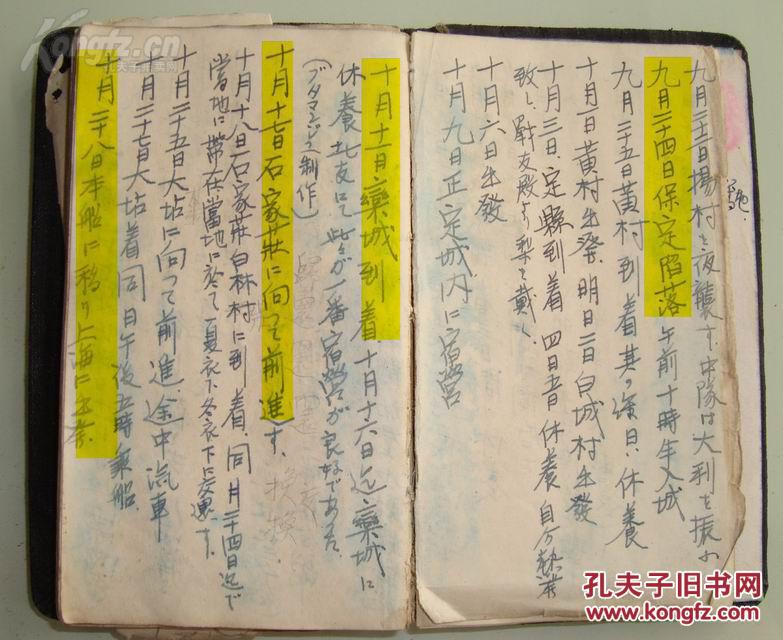 九月二十二日揚村を夜襲す、中隊は大刹を振
九月二十四日保定陷落午前十時半入城
九月二十五日黄村到着其の後日、休養
十月一日黄村出發、明日二日白城村出發
十月三日、定縣到着 四日五日休養 自分熱
致し戰友殿より梨を戴く
十月六日出發
十月九日正定城内に宿営
十月十一日、欒城到着、十月十六日迄欒城に
休養此支にて 此が一番宿営が良好であった
(ブタマンジュ制作)
十月十七日石家莊に向って前進す、
十月十八日石家莊白林村に到着、同月二十四日迄で
當地に滞在當地に於て夏衣下冬衣下に交還す、
十月二十五日大站に向って前進途中汽車
十月二十七日大站着同日午後五時乗船、
十月二十八日本船に移り上海に出発、
孔夫子旧书网
www.kongfz.com
Kongfz.cn
孔夫子旧书网